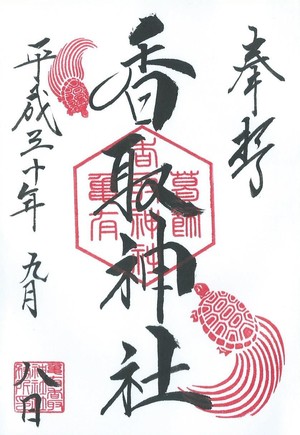 奉拝
香取神社
葛飾
香取神社
亀有
平成三十年九月八日